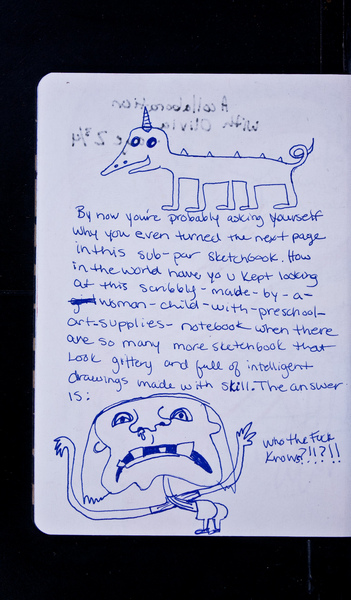 A collaboration
with Olivia
2 3/4
By now you're probably asking yourself
why you even turned the next page
in this sub-par sketchbook. How
in the world have yo u kept looking
at this scribbly-made-by-a-
woman-child-with-preschool-
art-supplies-notebook when there
are so many more sketchbook that
Look gittery and full of intelligent
drawings made with skill. The answer
is:
who the Fuck
Knows?!!?!!